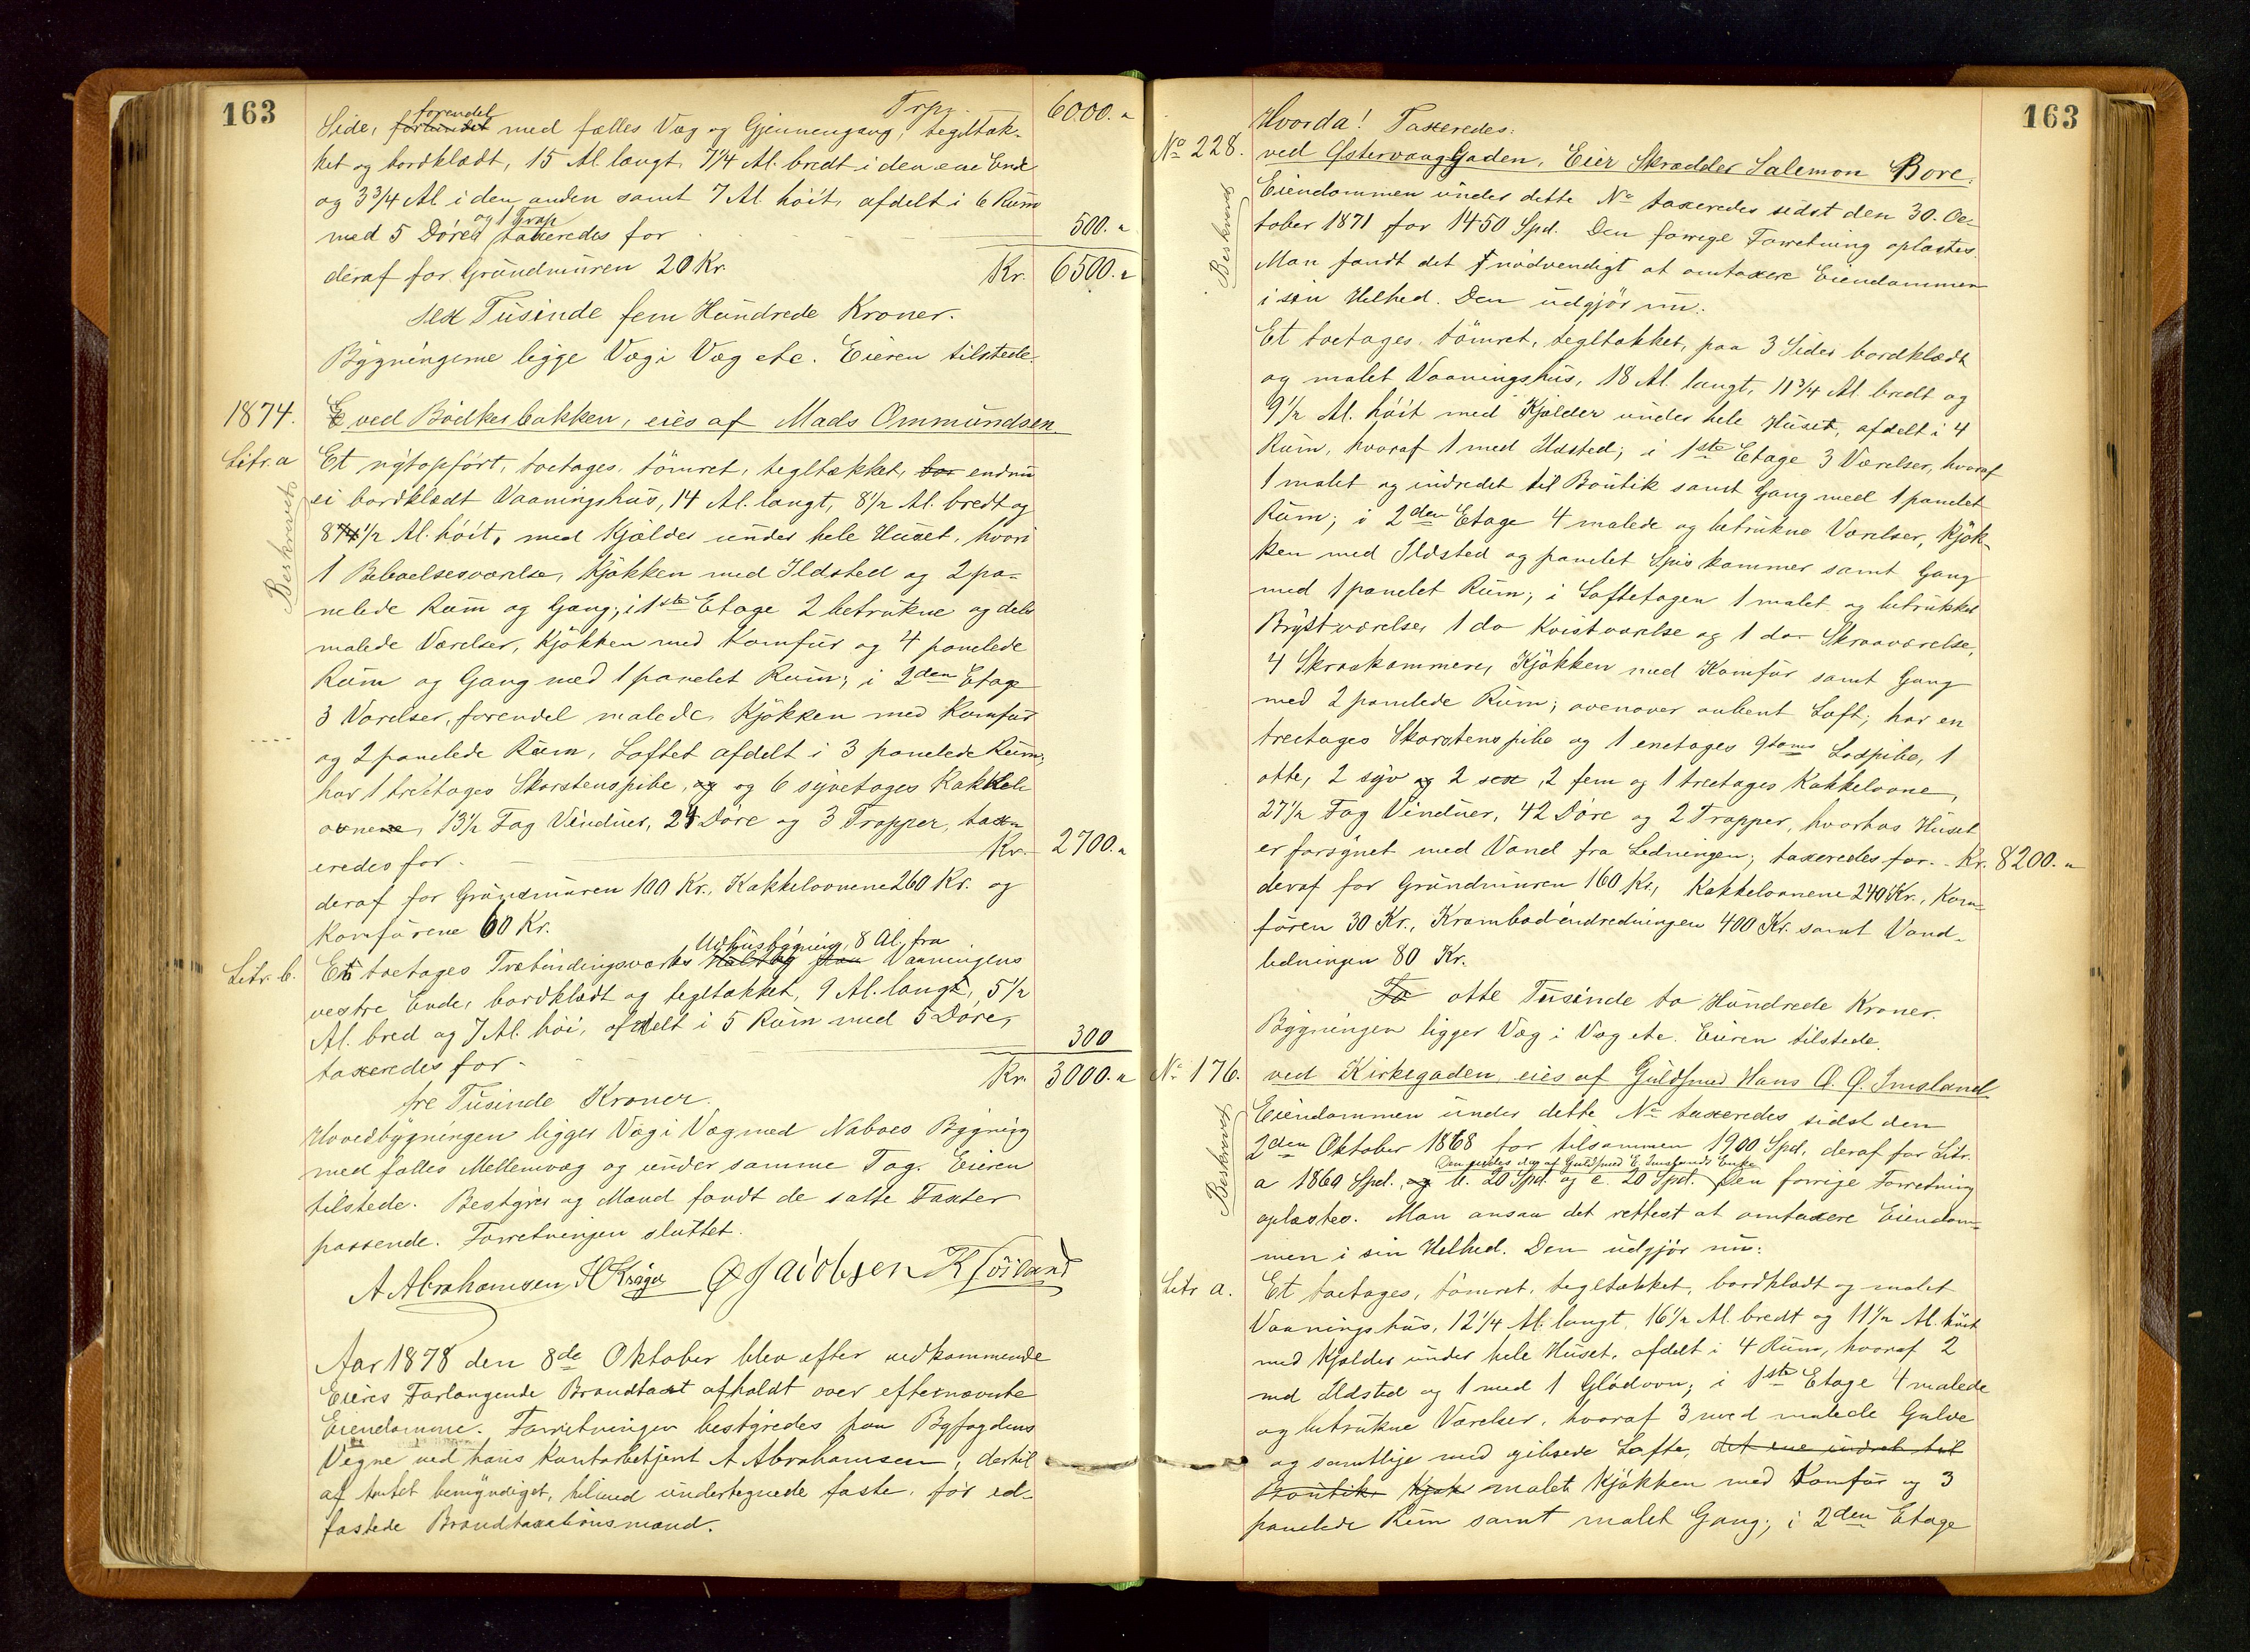 163
Trp. 6000. "
Side, forbundet forendel med fælles Væg og Gjennengang, tegltæk-
ket og bordklædt, 15 Al. langt, 7 1/4 Al. bredt i den ene Ende
og 3 3/4 Al i den anden samt 7 Al höit, afdelt i 6 Rum
med 5 Döre og 1 Trap taxeredes for 500. "
deraf for Grundmuren 20 Kr. Kr. 6500. "
sex Tusinde fem Hundrede Kroner.
Bygningerne ligge Væg i Væg etc. Eieren tilstede.
1874. ved Bödkerbakken, eies af Mads Ommundsen.
Litr. a Et nyopfört, toetages, tömret, tegltækket, endnu
Beskrevet
ei bordklædt Vaaningshus, 14 Al. langt, 8 1/2 Al. bredt og
8 1/2 Al. höit, med Kjælder under hele Huset, hvori
1 Beboelsesværelse, Kjökken med Ildsted og 2 pa-
nelede Rum og Gang; i 1ste Etage 2 betrukne og dels
malede Værelser, Kjökken med Komfur og 4 panelede
Rum og Gang med 1 panelet Rum; i 2den Etage
3 Værelser, forendel malede, Kjökken med Komfur
og 2 panelede Rum, Loftet afdelt i 3 panelede Rum;
har 1 treetages Skorstenspibe, og og 6 syvetages Kakkel-
ovnene, 13 1/2 Fag Vinduer, 24 Döre og 3 Trapper, tax-
eredes for Kr. 2700. "
deraf for Grundmuren 100 Kr., Kakkelovnene 260 Kr. og
Komfurene 60 Kr.
Udhusbygning, 8 Al. fra
Litr. b. Et toetages Træbindingsværks Vaaningens
vestre Ende, bordklædt og tegltækket, 9 Al. langt, 5 1/2
Al. bred og 7 Al. höi, afdelt i 5 Rum med 5 Döre,
taxeredes for 300
Kr. 3000. "
tre Tusinde Kroner.
Hovedbygningen ligger Væg i Væg med Naboes Bygning
med fælles Mellemvæg og under samme Tag. Eieren
tilstede. Bestyrer og Mænd fandt de satte Taxter
passende. Forretningen sluttet.
A Abrahamsen Ø Jacobsen
Aar 1878 den 8de Oktober blev efter vedkommende
Eieres Forlangende Brandtaxt afholdt over efternævnte
Eiendomme. Forretningen bestyredes paa Byfogdens
Vegne ved hans Kontorbetjent A Abrahamsen, dertil
af Amtet bemyndiget, hiland undertegnede faste, för ed-
fæstede Brandtaxationsmænd.
163
Hvorda! Taxeredes:
No 228. ved Østervaag Gaden, Eier Skrædder Salemon Bore.
Beskrevet
Eiendommen under dette No taxeredes sidst den 30. Oc-
tober 1871 for 1450 Spd. Den forrige Forretning oplæstes.
Man fandt det nödvendigt at omtaxere Eiendommen
i sin Helhed. Den udgjör nu:
Et toetages, tömret, tegltækket, paa 3 Sider bordklædt
og malet Vaaningshus, 18 Al. langt, 11 3/4 Al. bredt og
9 1/2 Al. höit med Kjælder under hele Huset, afdelt i 4
Rum, hvoraf 1 med Ildsted; i 1ste Etage 3 Værelser, hvoraf
1 malet og indredet til Boutik samt Gang med 1 panelet
Rum; i 2den Etage 4 malede og betrukne Værelser, Kjök-
ken med Ildsted og panelet Spiskammer samt Gang
med 1 panelet Rum; i Loftetagen 1 malet og betrukket
Brystværelse, 1 do Kvistværelse og 1 do Skraaværelse,
4 Skraakammere, Kjökken med Komfur samt Gang
med 2 panelede Rum; ovenover aabent Loft; har en
treetages Skorstenspibe og 1 enetages Lodpibe, 1
otte, 2 syv og 2 sex, 2 fem og 1 treetages Kakkelovne,
27 1/2 Fag Vinduer, 42 Döre og 2 Trapper, hvorhos Huset
er forsynet med Vand fra Ledningen; taxeredes for Kr. 8200. "
deraf for Grundmuren 160 Kr., Kakkelovnene 240 Kr., Kom-
furen 30 Kr., Krambodindredningen 400 Kr. samt Vand-
ledningen 80 Kr.
To otte Tusinde to Hundrede Kroner.
Bygningen ligger Væg i Væg etc. Eieren tilstede.
No 176. ved Kirkegaden, eies af Guldsmed Hans O. Ø. Imsland.
Beskrevet
Eiendommen under dette No taxeredes sidst den
2den Oktober 1868 for tilsammen 1900 Spd, deraf for Litr.
Den eiedes dog af Guldsmed E. Imslands Enke
a 1860 Spd., og b. 20 Spd. og c. 20 Spd. Den forrige Forretning
oplæstes. Man ansaa det rettest at omtaxere Eiendom-
men i sin Helhed. Den udgjör nu:
Litr a. Et toetages, tömret, tegltækket, bordklædt og malet
Vaaningshus, 12 1/4 Al. langt, 16 1/2 Al. bredt og 11 1/2 Al. höit
med Kjælder under hele Huset, afdelt i 4 Rum, hvoraf 2
med Ildsted og 1 med 1 Glödovn; i 1ste Etage 4 malede
og betrukne Værelser, hvoraf 3 med malede Gulve
og samtlige med gibsede Lofte, det ene indredt til
Boutik, Kjøk malet Kjökken med Komfur og 3
panelede Rum samt malet Gang; i 2den Etage